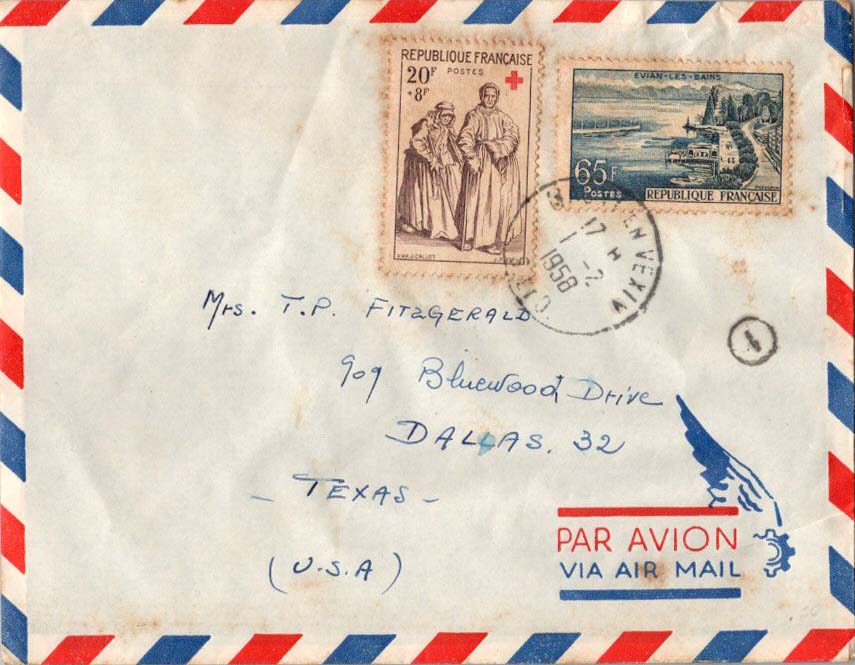 REPUBLIQUE FRANÇAISE
20F POSTES
+8F
EVIAN-LES-BAINS
65F
POSTES REPUBLIQUE FRANÇAISE
EN VEXIN
17 H
1 -2
1958
Mrs. T.P. FITZGERALD
909 Bluewood Drive
DALLAS. 32
- TEXAS -
(U.S.A)
PAR AVION
VIA AIR MAIL